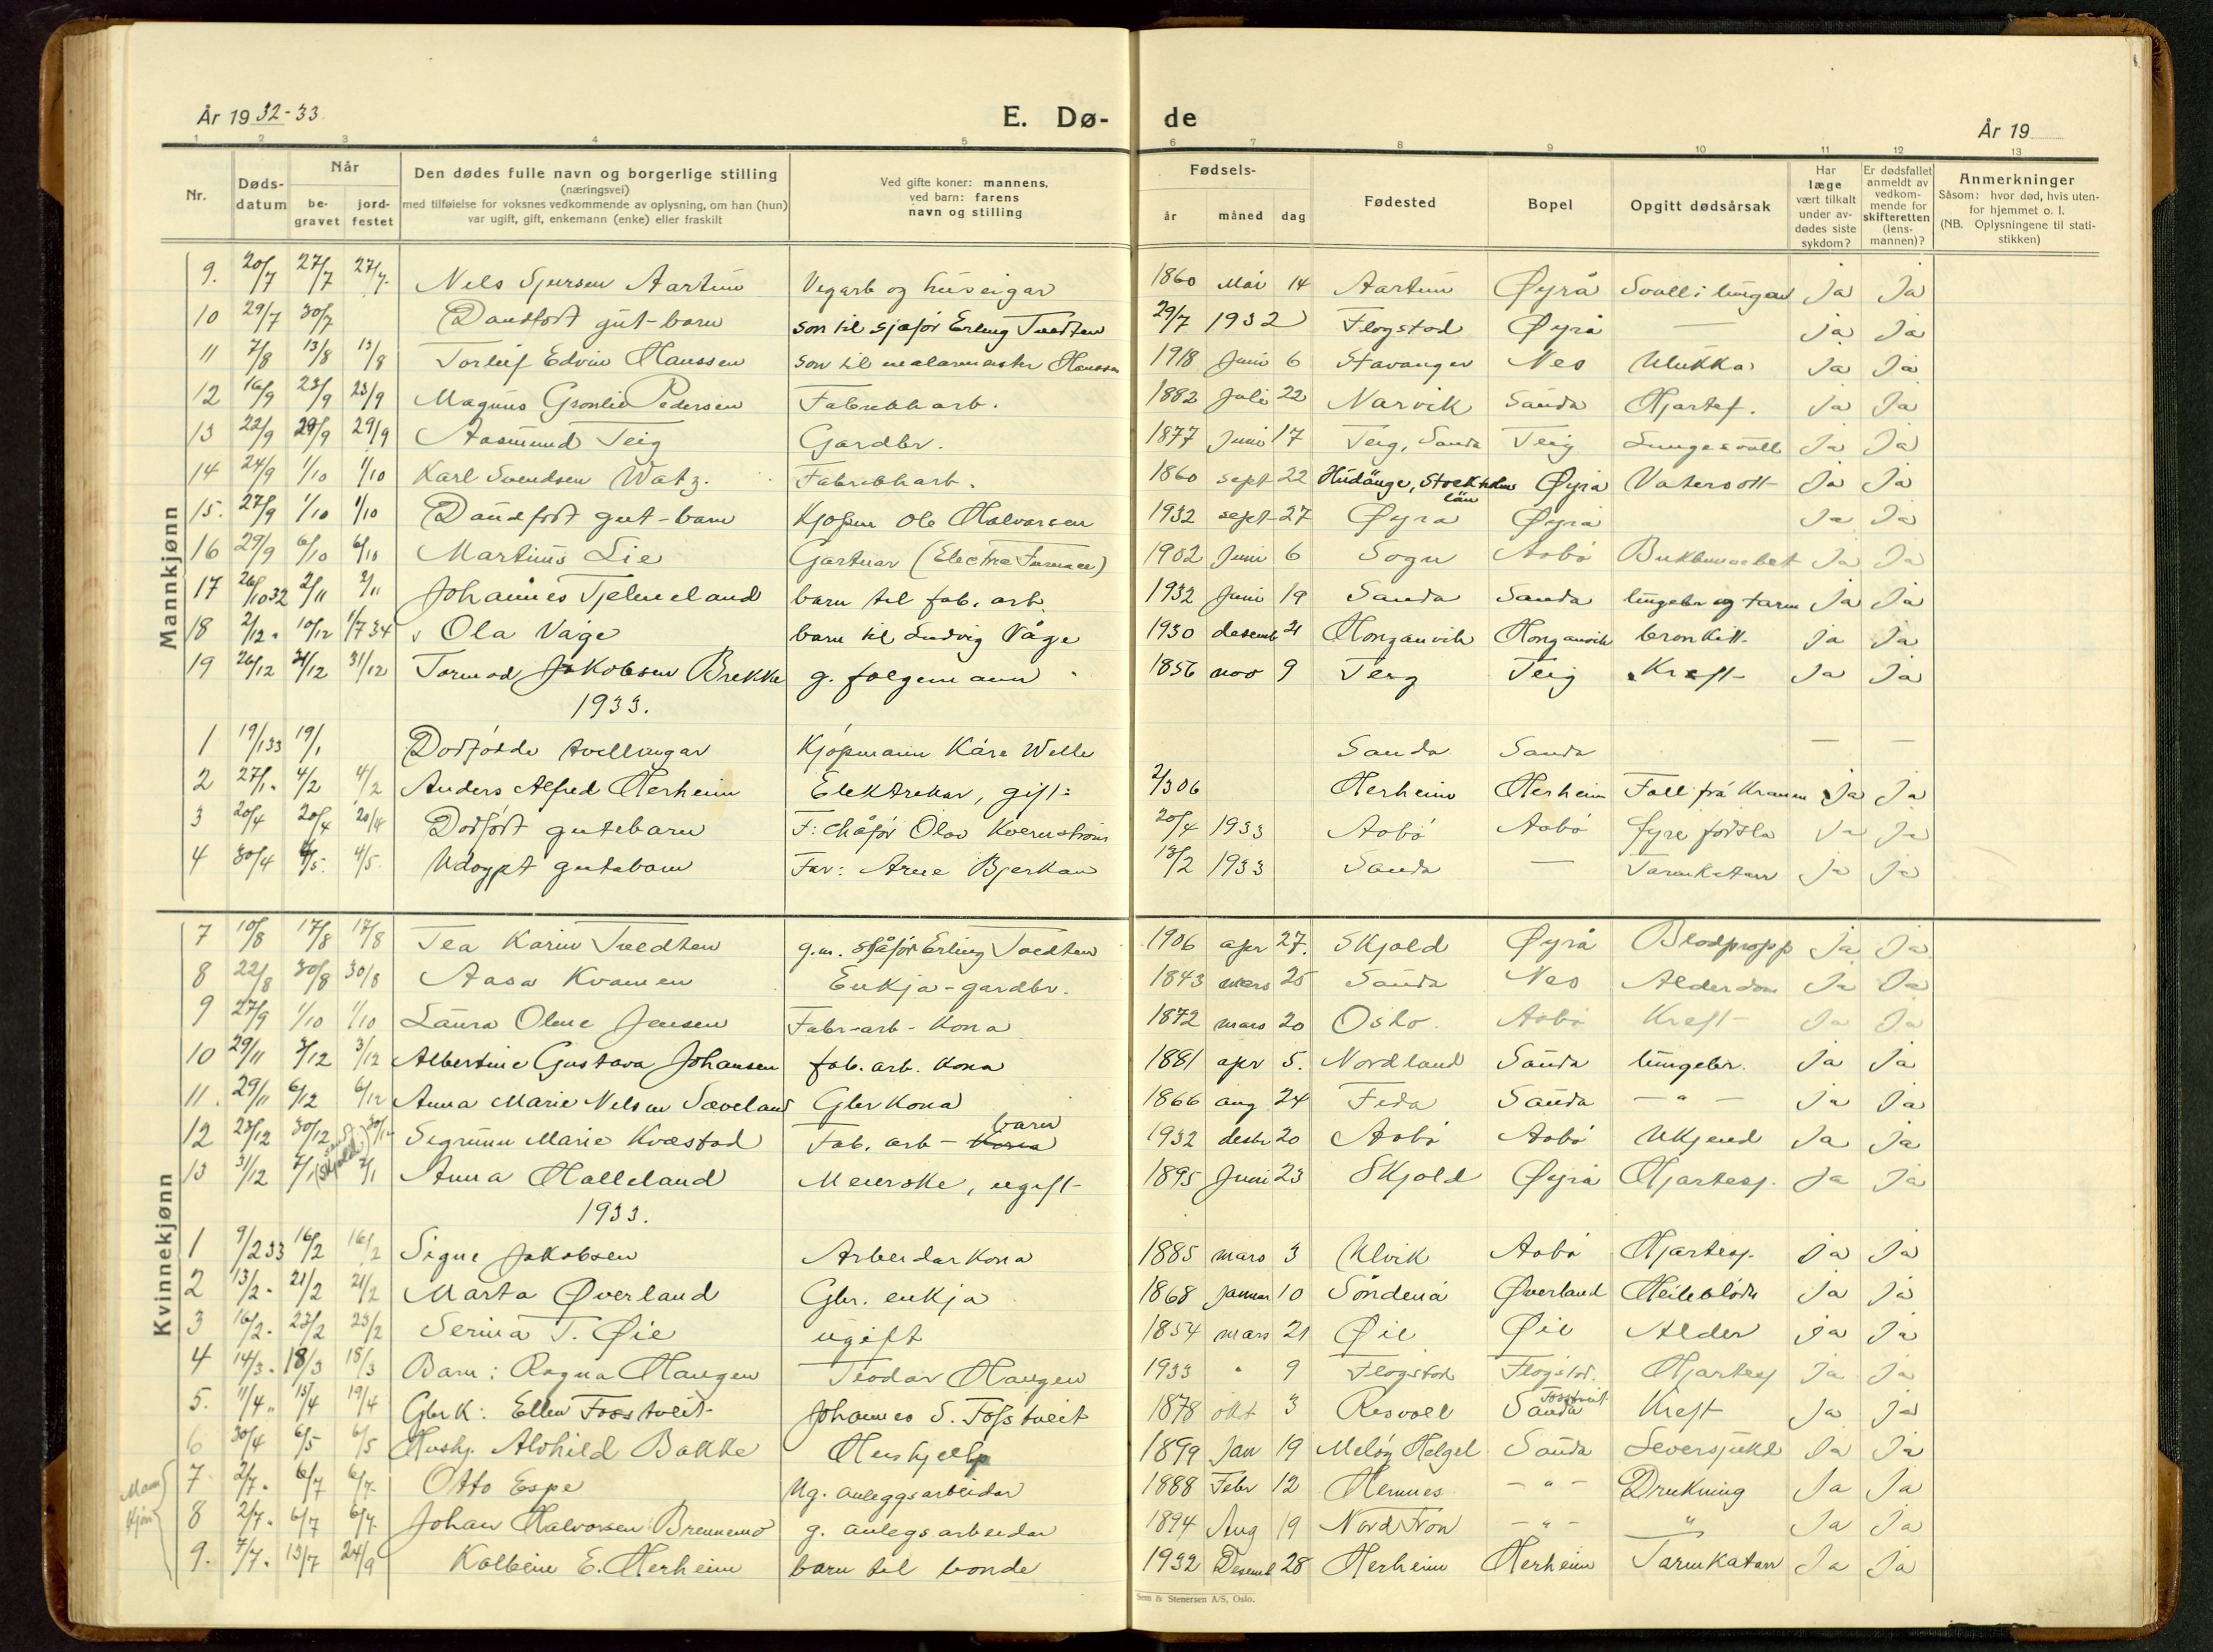 År 19 32-33.
E. Dø-
de
År 19
1 2 3 4 5 6 7 8 9 10 11 12 13
Nr. Døds-datum Når be-gravet jord-festet Den dødes fulle navn og borgerlige stilling (næringsvei) med tilføielse for voksnes vedkommende av oplysning, om han (hun) var ugift, gift, enkemann (enke) eller fraskilt Ved gifte koner: mannens, ved barn: farens navn og stilling Fødsels- år måned dag Fødested Bopel Opgitt dødsårsak Har læge vært tilkalt under av-dødes siste sykdom? Er dødsfallet anmeldt av vedkom-mende for skifteretten (lens-mannen)? Anmerkninger Såsom: hvor død, hvis uten-for hjemmet o. l. (NB. Oplysningene til stati-stikken)
Mannkjønn
9. 20/7 27/7 27/7. Nels Sjursen Aartun Vegarb og huseigar 1860 Mai 14 Aartun Øyrå Svull i lungen Ja Ja
10 29/7 30/7 Daudfødt gut-barn son til sjåfør Erling Tvedten 29/7 1932 Flogstad Øyrå — Ja Ja
11 7/8 13/8 13/8 Torleif Edvin Hanssen son til malarmeister Hanssen 1918 Juni 6 Stavanger Nes Ulukka Ja Ja
12 16/9 23/9 23/9 Magnus Gronlie Pedersen Fabrikkarb. 1882 Juli 22 Narvik Sauda Hjartef. Ja Ja
13 22/9 29/9 29/9 Aasmund Teig Gardbr. 1877 Juni 17 Teig, Sauda Teig Lungesvull Ja Ja
14 24/9 1/10 1/10 Karl Svendsen Watz. Fabrikkarb. 1860 sept 22 Hudänge, Stockholms län Øyrå Vatersott Ja Ja
15. 27/9 1/10 1/10 Daudfødt gut-barn Kjøpm Ole Halvorsen 1932 sept 27 Øyra Øyrå Ja Ja
16 29/9 6/10 6/10 Martinus Lie Gartnar (Electric Furnace) 1902 Juni 6 Sogn Aabø Ja Ja
17 26/10 32 2/11 2/11 Johannes Tjelmeland barn til fab. arb. 1932 Juni 19 Sauda Sauda lungebr og tarm Ja Ja
18 2/12 " 10/12 1/7 34 Ola Våge barn til Ludvig Våge 1930 desemb 21 Honganvik Honganvik bronkitt Ja Ja
19 26/12 31/12 31/12 Tormod Jakobsen Brekke g. folgemann 1856 nov 9 Teig Teig Kreft Ja Ja
1933.
1 19/1 33 19/1 Dødfødde tvillingar Kjøpmann Kåre Welle Sauda Sauda — —
2 27/1 " 4/2 4/2 Anders Alfred Herheim Elektrekar, gift 2/3 06 Herheim Herheim Fall frå Kranen Ja Ja
3 20/4 20/4 20/4 Dødfødt gutebarn F: chåfør Olav Kvernstrøm 20/4 1933 Aabø Aabø fyre fødsla Ja Ja
4 30/4 4/5. 4/5. Udøypt gutebarn Far: Arne Bjerkan 13/2 1933 Sauda — Tarmkatarr Ja Ja
Kvinnekjønn
7 10/8 17/8 17/8 Tea Karin Tvedten g.m. sjåfør Erling Tvedten 1906 apr 27. Skjold Øyrå Blodpropp Ja Ja
8 22/8 30/8 30/8 Aasa Kvamen Enkja-gardbr. 1843 mars 25 Sauda Nes Alderdom Ja Ja
9 27/9 1/10 1/10 Laura Oline Jensen Fabr-arb-kona 1872 mars 20 Oslo. Aabø Kreft Ja Ja
10 29/11 3/12 3/12 Albertine Gustava Johansen fab. arb. kona 1881 apr 5. Nordland Sauda lungebr. Ja Ja
11. 29/11 6/12 6/12 Anna Marie Nelsen Sæveland Gbr kona 1866 aug 24 Feda Sauda — " — Ja Ja
12 23/12 30/12 30/12 Sigrunn Marie Kvæstad Fab. arb - kona barn 1932 desbr 20 Aabø Aabø Ukjend Ja Ja
13 31/12 7/1 (Skjold) 7/1 Anna Halleland Meierske, ugift 1895 Juni 23 Skjold Øyrå Hjartesj. Ja Ja
1933.
1 9/2 33 16/2 16/2 Signe Jakobsen Arbeidarkona 1885 mars 3 Ulvik Aabø Hjartesj. Ja Ja
2 13/2 " 21/2 21/2 Marta Øverland Gbr. enkja 1868 januar 10 Søndenå Øverland Heilebløde Ja Ja
3 16/2 " 23/2 23/2 Serina T. Øie ugift 1854 mars 21 Øie Øie Alder Ja Ja
4 14/3 " 18/3 18/3 Barn: Ragna Haugen Teodor Haugen 1933 " 9 Flogstad Flogstad. Hjartesj Ja Ja
5. 11/4 " 15/4 19/4 Gbr K: Ellen Fosstveit Johannes S. Fosstveit 1878 okt 3 Risvoll Sauda Fosstveit Kreft Ja Ja
6 30/4 6/5 6/5 Hushj. Alvhild Bakke Hushjelp 1899 Jan 19 Meløy Helgel. Sauda Leversjukd Ja Ja
Mannkjønn
7 2/7 " 6/7 6/7 Otto Espe Ug. anleggsarbeidar 1888 Febr 12 Hemnes — " — Drukning Ja Ja
8 2/7 " 6/7 6/7 Johan Halvorsen Brennemo g. anlegsarbeidar 1894 Aug 19 Nord Fron — " — " Ja Ja
9. 7/7 " 13/7 24/9 Kolbein E. Herheim barn til bonde 1932 Desemb 28 Herheim Herheim Tarmkatarr Ja Ja
Sem & Stenersen A/S, Oslo.